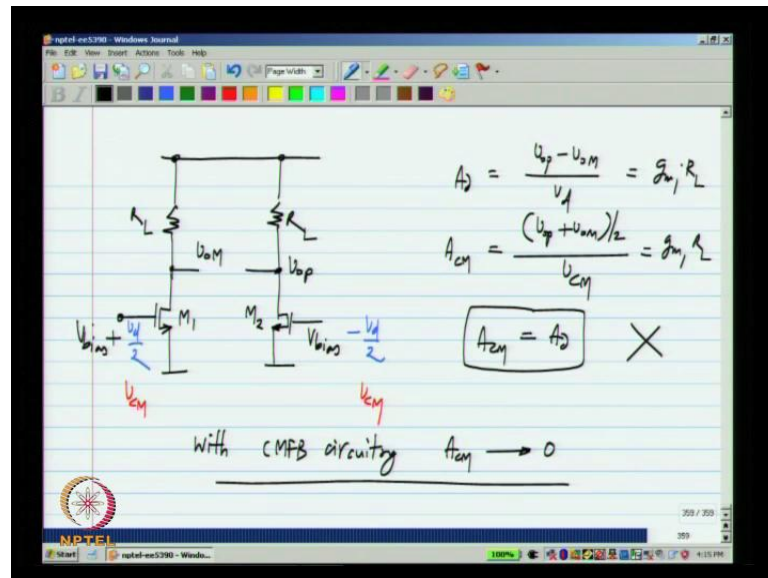 nptel-ee5390 - Windows Journal
File Edit View Insert Actions Tools Help
Page Width
B I
R_L
R_L
V_oM
V_op
M_1
M_2
V_bias + V_d/2
V_bias - V_d/2
V_CM
V_CM
A_d = (V_op - V_oM) / V_d = g_m1 · R_L
A_CM = ((V_op + V_oM)/2) / V_CM = g_m1 R_L
A_CM = A_d X
With CMFB circuiting A_CM → 0
NPTEL
359 / 359
359
Start
nptel-ee5390 - Windo...
100%
4:15 PM